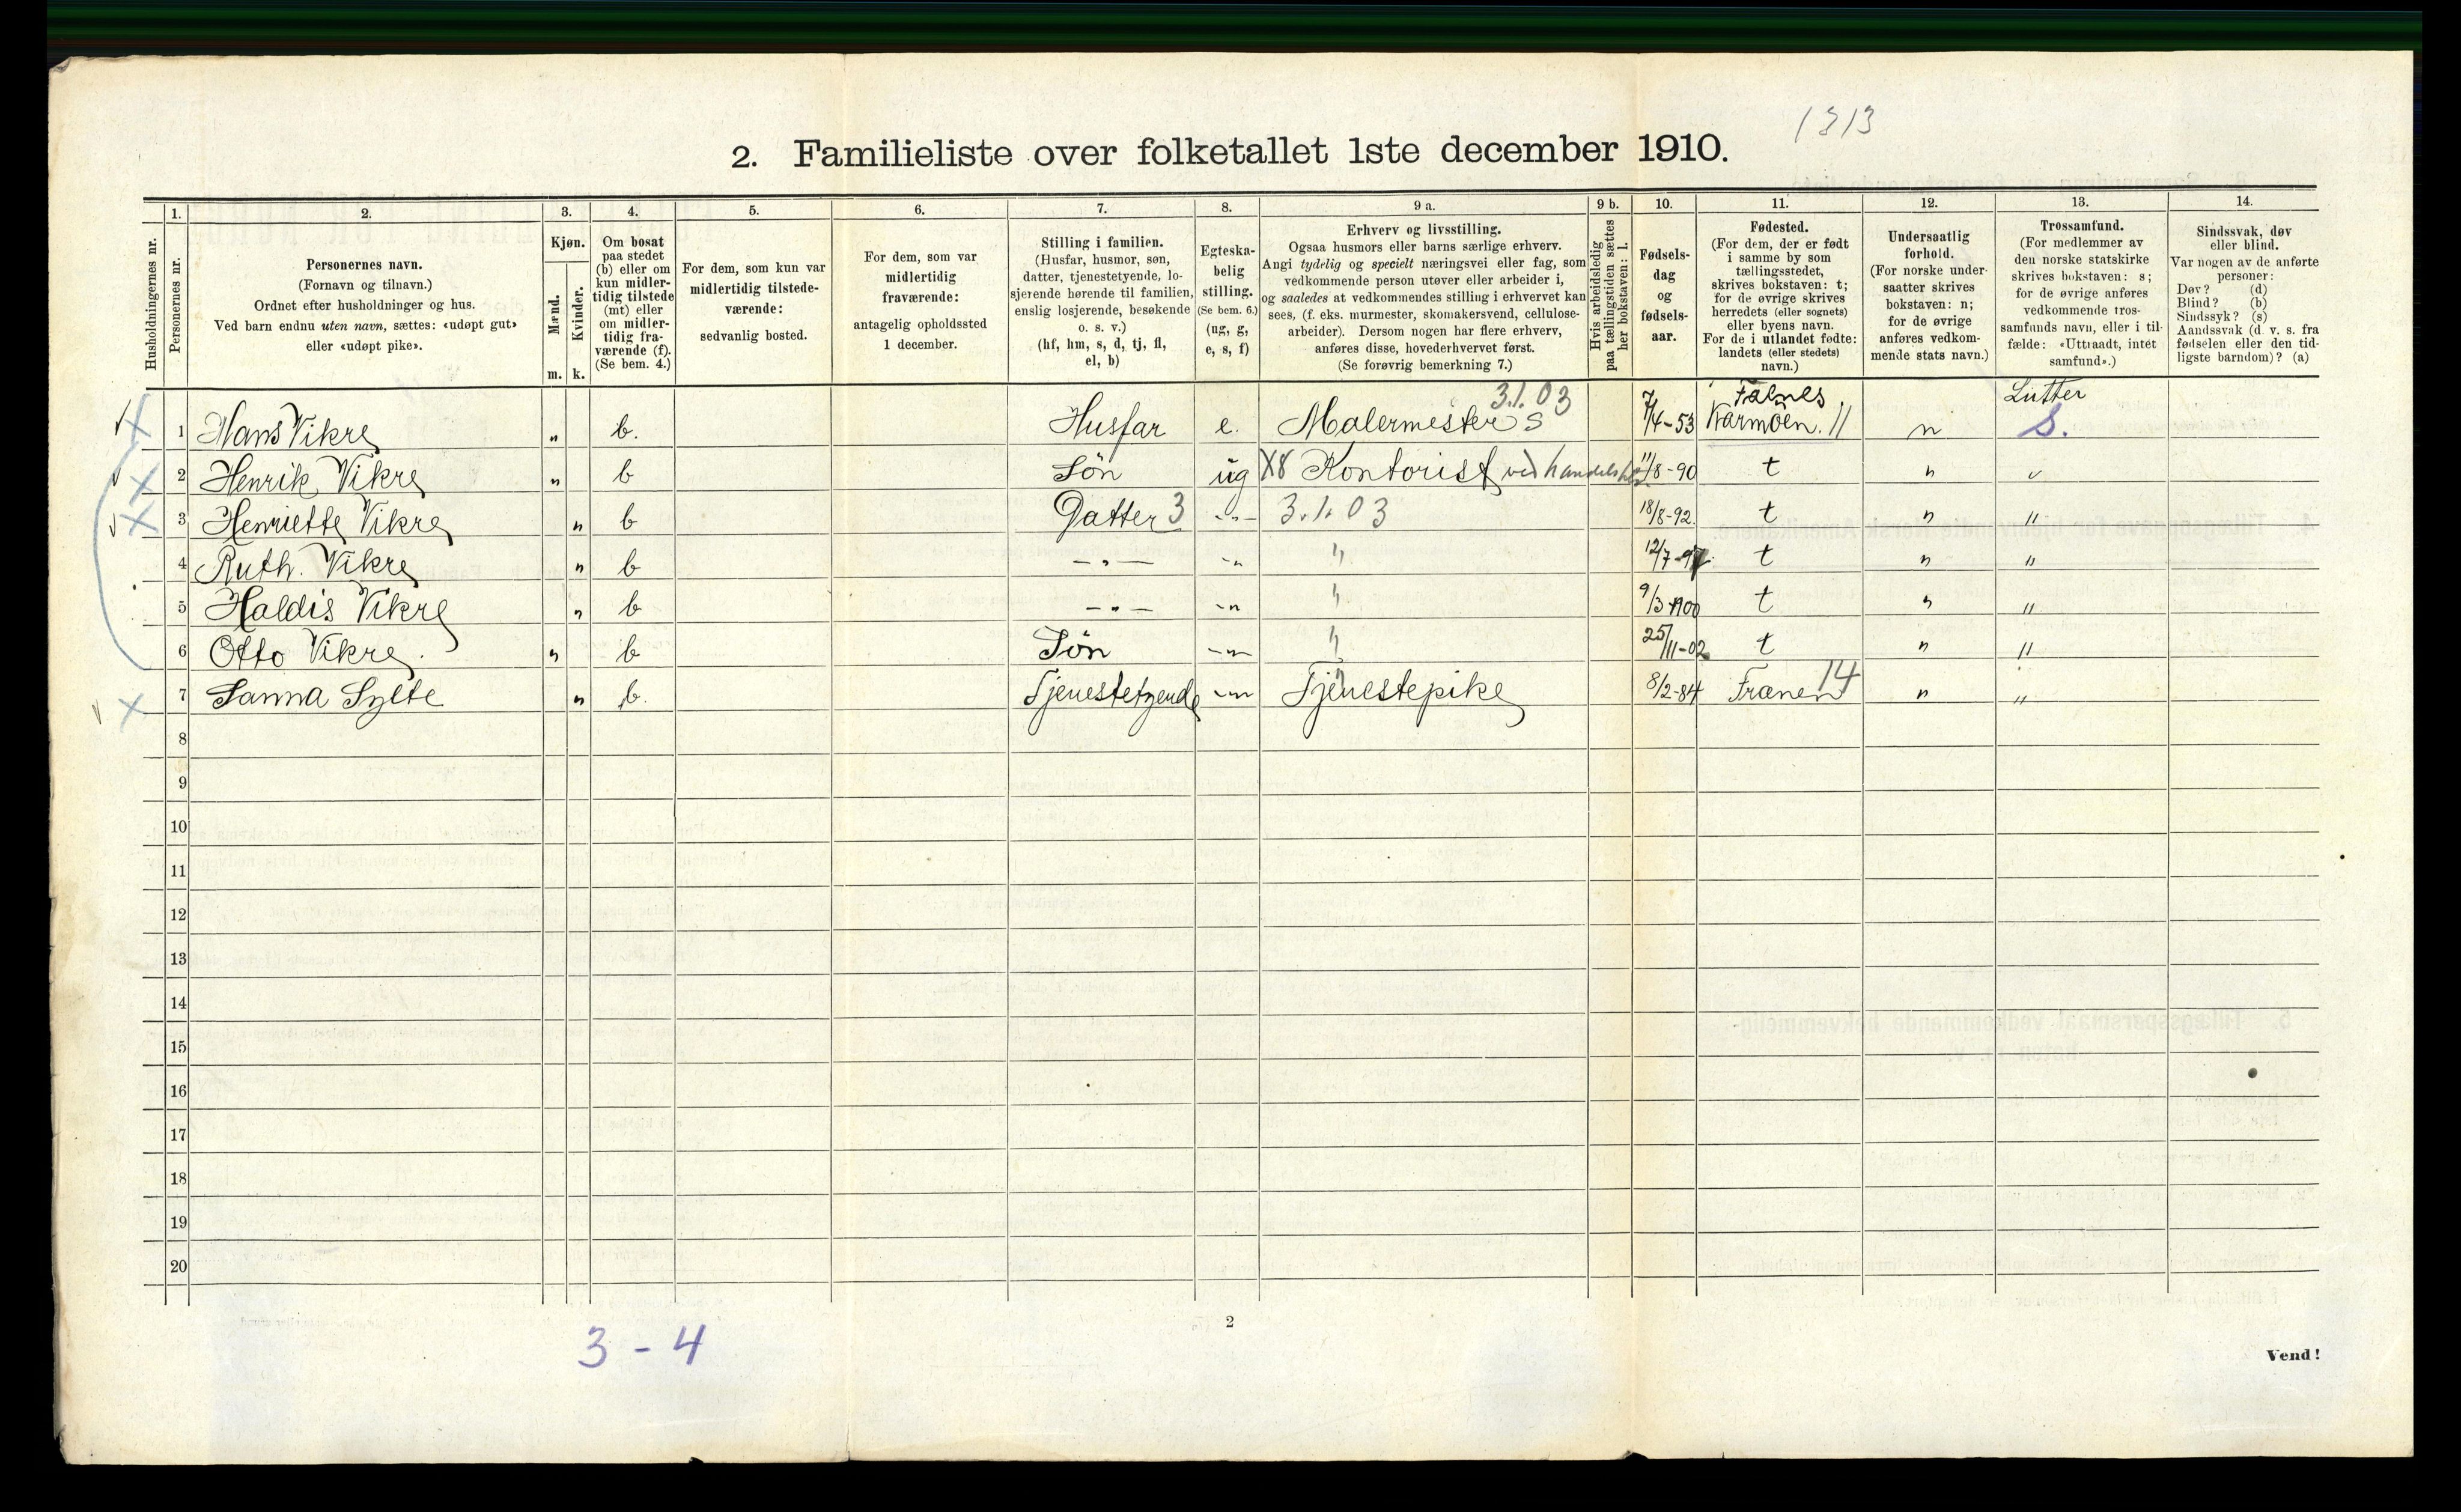 1313
2. Familieliste over folketallet 1ste december 1910.
Husholdningernes nr.
1.
Personernes nr.
2.
Personernes navn.
(Fornavn og tilnavn.)
Ordnet efter husholdninger og hus.
Ved barn endnu uten navn, sættes: «udøpt gut»
eller «udøpt pike».
3.
Kjøn.
Mænd.
Kvinder.
m. k.
4.
Om bosat
paa stedet
(b) eller om
kun midler-
tidig tilstede
(mt) eller
om midler-
tidig fra-
værende (f).
(Se bem. 4.)
5.
For dem, som kun var
midlertidig tilstede-
værende:
sedvanlig bosted.
6.
For dem, som var
midlertidig
fraværende:
antagelig opholdssted
1 december.
7.
Stilling i familien.
(Husfar, husmor, søn,
datter, tjenestetyende, lo-
sjerende hørende til familien,
enslig losjerende, besøkende
o. s. v.)
(hf, hm, s, d, tj, fl,
el, b)
8.
Egteska-
belig
stilling.
(Se bem. 6.)
(ug, g,
e, s, f)
9 a.
Erhverv og livsstilling.
Ogsaa husmors eller barns særlige erhverv.
Angi tydelig og specielt næringsvei eller fag, som
vedkommende person utøver eller arbeider i,
og saaledes at vedkommendes stilling i erhvervet kan
sees, (f. eks. murmester, skomakersvend, cellulose-
arbeider). Dersom nogen har flere erhverv,
anføres disse, hovederhvervet først.
(Se forøvrig bemerkning 7.)
9 b.
Hvis arbeidsledig
paa tællingstiden sættes
her bokstaven: l.
10.
Fødsels-
dag
og
fødsels-
aar.
11.
Fødested.
(For dem, der er født
i samme by som
tællingsstedet,
skrives bokstaven: t;
for de øvrige skrives
herredets (eller sognets)
eller byens navn.
For de i utlandet fødte:
landets (eller stedets)
navn.)
12.
Undersaatlig
forhold.
(For norske under-
saatter skrives
bokstaven: n;
for de øvrige
anføres vedkom-
mende stats navn.)
13.
Trossamfund.
(For medlemmer av
den norske statskirke
skrives bokstaven: s;
for de øvrige anføres
vedkommende tros-
samfunds navn, eller i til-
fælde: «Uttraadt, intet
samfund».)
14.
Sindssvak, døv
eller blind.
Var nogen av de anførte
personer:
Døv? (d)
Blind? (b)
Sindssyk? (s)
Aandssvak (d. v. s. fra
fødselen eller den tid-
ligste barndom)? (a)
3.1.03 Falnes Lutter
1 Hans Vikre " b. Husfar e. Malermester S 7/4-53 Karmöen. 11 n S.
2 Henrik Vikre " b Sön ug X8 Kontorist ved 11/8-90 t n "
3 Henriette Vikre " b Datter 3 -"- 3.1.03 18/8-92. t n "
4 Ruth. Vikre " b -"- -" " 12/7-97. t n "
5 Haldis Vikre " b -"- -" " 9/3-1900 t n "
6 Otto Vikre. " b Sön -"- " 25/11-02 t n "
7 Sanna Sylte " b. Tjenestetyende -"- Tjenestepike 8/2-84 Frænen 14 n "
8
9
10
11
12
13
14
15
16
17
18
19
20
3 - 4
2
Vend!